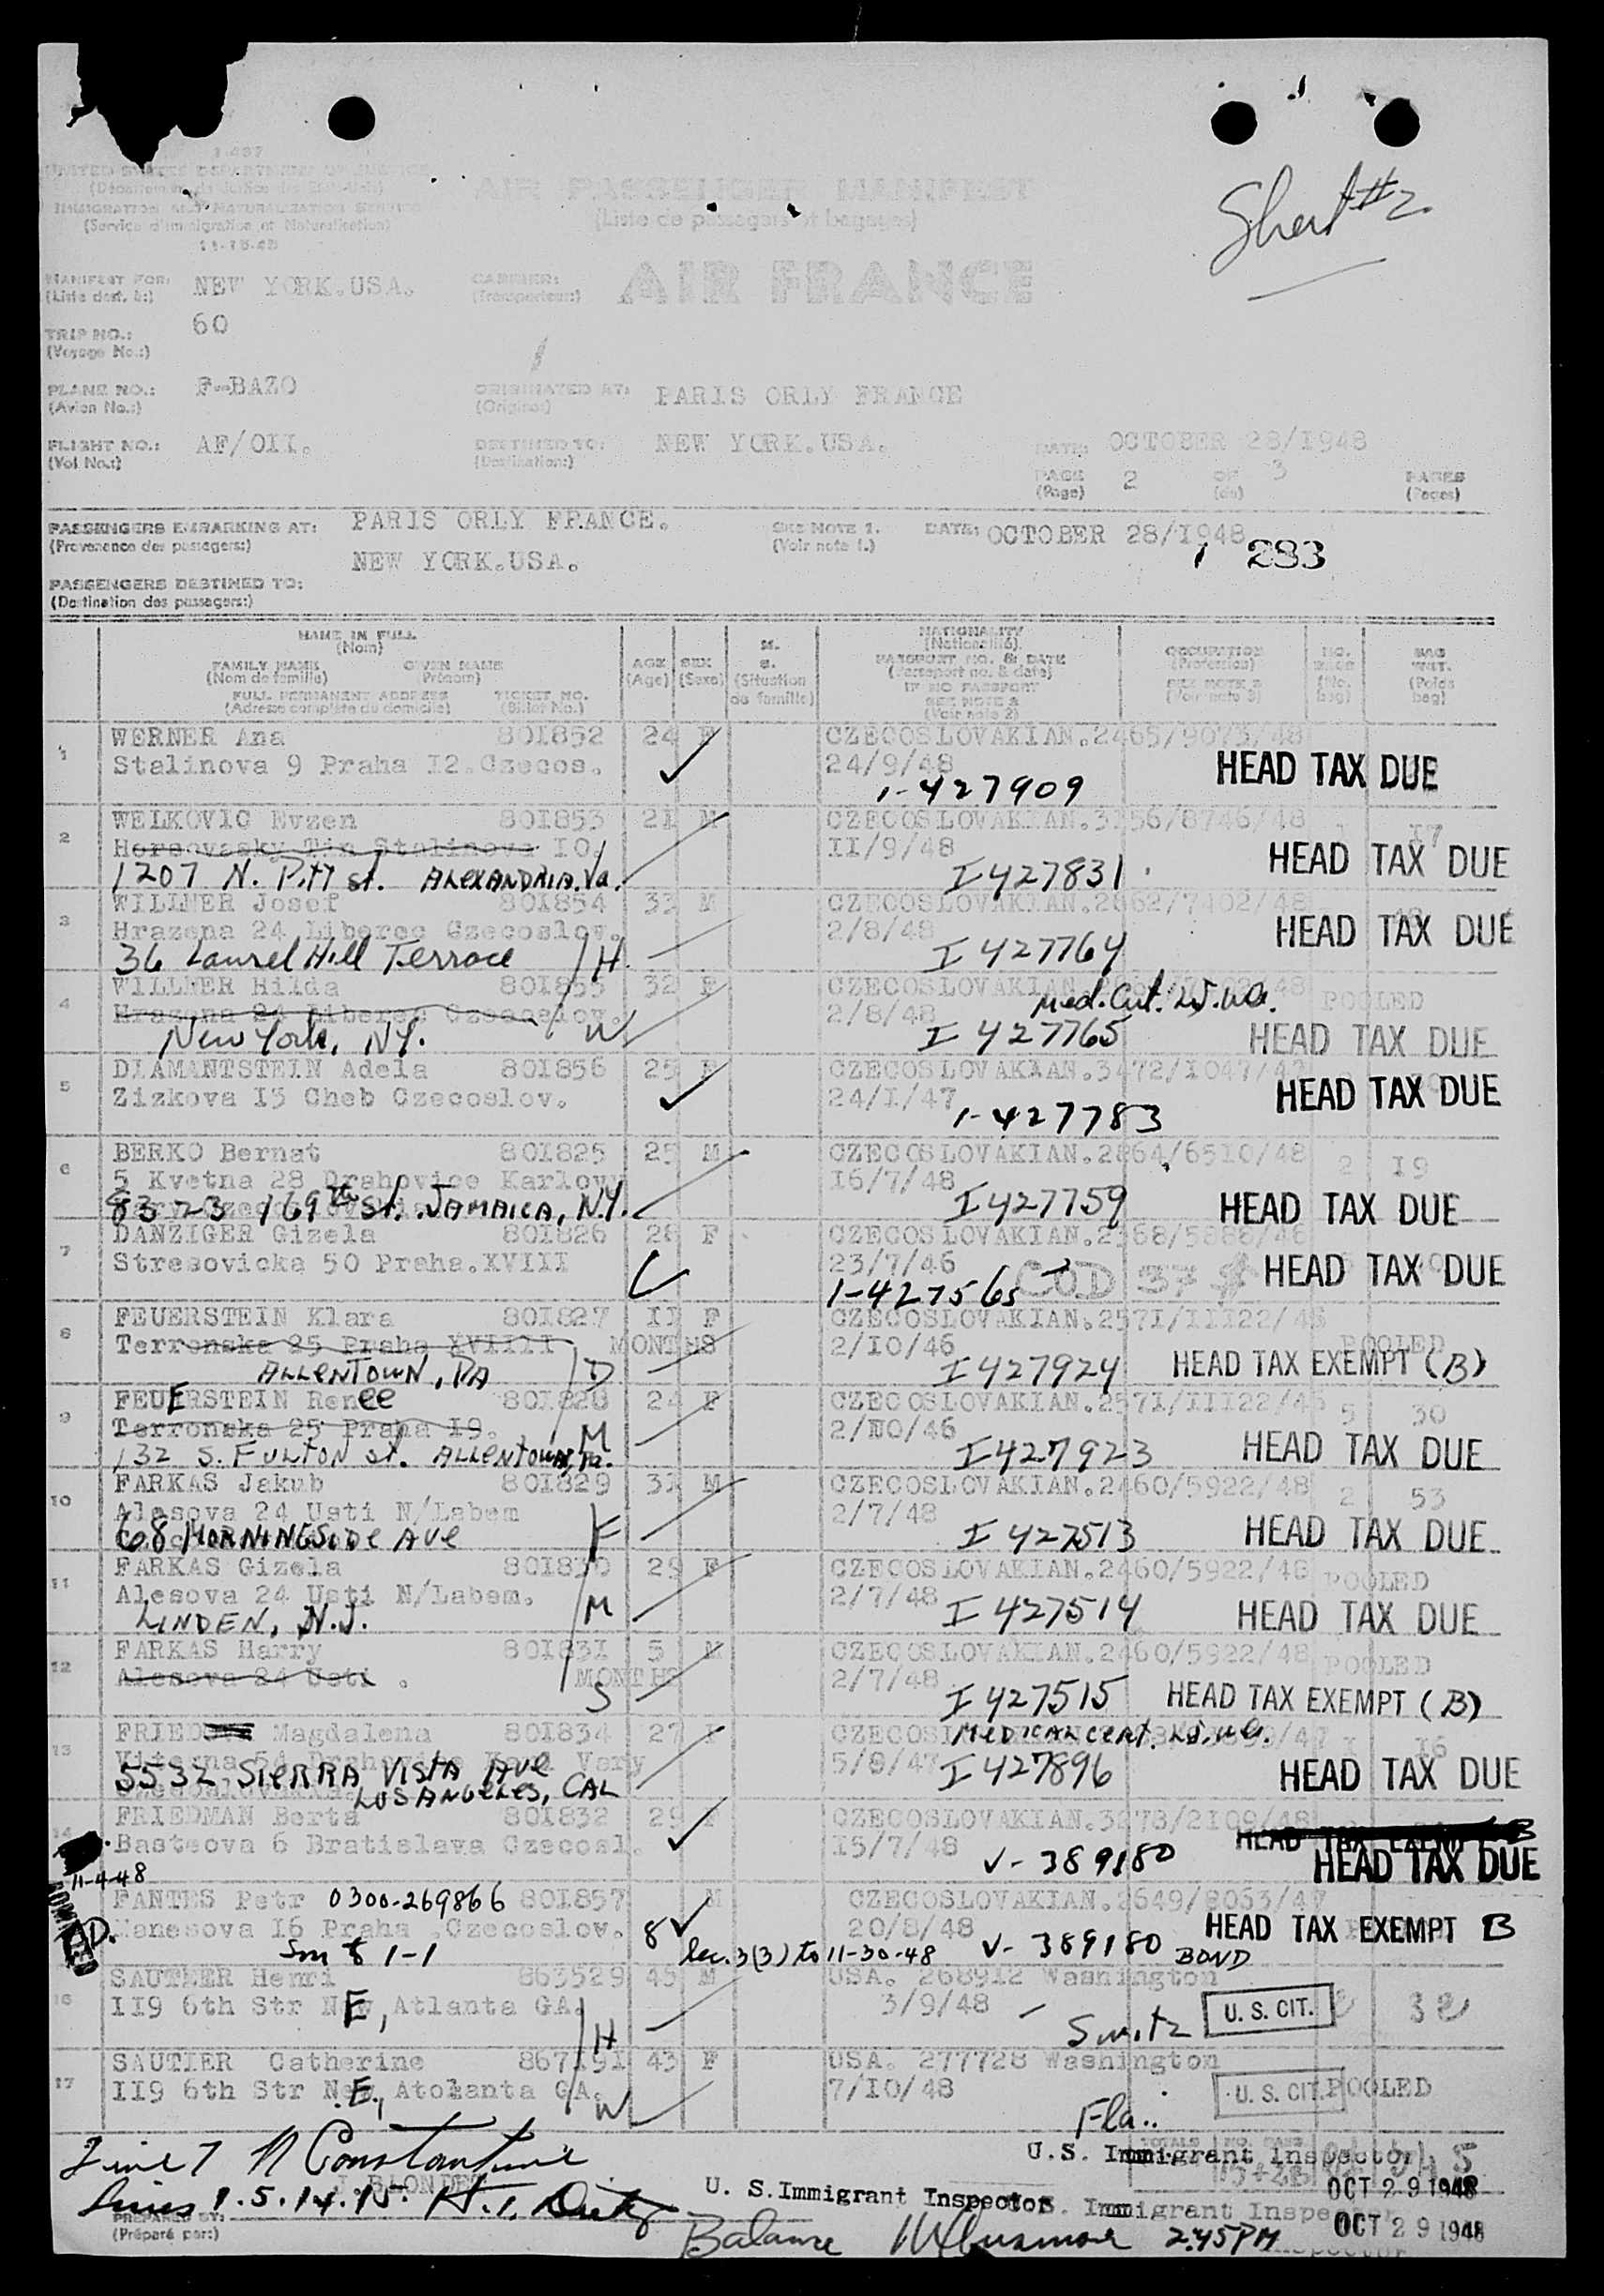 1-487
UNITED STATES DEPARTMENT OF JUSTICE
(Département de Justice des Etats-Unis)
IMMIGRATION AND NATURALIZATION SERVICE
(Service d'immigration et Naturalisation)
AIR PASSENGER MANIFEST
(Liste de passagers et bagages)
Sheet #2
MANIFEST FOR: NEW YORK.USA.
(Liste dest. à:)
CARRIER: AIR FRANCE
(Transporteur:)
TRIP NO.: 60
(Voyage No.:)
PLANE NO.: F-BAZO
(Avion No.:)
ORIGINATED AT: PARIS ORLY FRANCE
(Origine:)
FLIGHT NO.: AF/OII.
(Vol No.:)
DESTINED TO: NEW YORK.USA.
(Destination:)
DATE: OCTOBER 28/I948
PAGE 2 OF 3 PAGES
(Page) (de) (Pages)
PASSENGERS EMBARKING AT: PARIS ORLY FRANCE.
(Provenance des passagers:)
SEE NOTE 1. DATE: OCTOBER 28/I948
(Voir note 1.)
283
NEW YORK.USA.
PASSENGERS DESTINED TO:
(Destination des passagers:)
NAME IN FULL
(Nom)
FAMILY NAME GIVEN NAME
(Nom de famille) (Prénom)
FULL PERMANENT ADDRESS TICKET NO.
(Adresse complète du domicile) (Billet No.)
AGE
(Age)
SEX
(Sexe)
M.
S.
(Situation de famille)
NATIONALITY
(Nationalité)
PASSPORT NO. & DATE
(Passeport no. & date)
IF NO PASSPORT
SEE NOTE 2
(Voir note 2)
OCCUPATION
(Profession)
SEE NOTE 3
(Voir note 3)
NO.
BAGS
(No.
bag)
BAG
WGT.
(Poids
bag)
1 WERNER Ana 80I852 24 F CZECOSLOVAKIAN.2465/9073/48
Stalinova 9 Praha I2.Czecos. 24/9/48 HEAD TAX DUE
1-427909
2 WELKOVIC Evzen 80I853 2I M CZECOSLOVAKIAN.3I56/8746/48
Horsovasky Tin Stalinova IO. II/9/48 I7
1207 N. Pitt st. ALEXANDRIA. Va. I 427831 HEAD TAX DUE
3 WILLNER Josef 80I854 33 M CZECOSLOVAKIAN.2862/7402/48
Hrazena 24 Liberec Czecoslov. 2/8/48 HEAD TAX DUE
36 Laurel Hill Terrace H. I 427764
4 WILLNER Hilda 80I855 32 F CZECOSLOVAKIAN.
Hrazena 24 Liberec Czecoslov. 2/8/48 Med. Cert. POOLED
New York, NY. W I 427765 HEAD TAX DUE
5 DIAMANTSTEIN Adela 80I856 25 F CZECOSLOVAKIAN.3472/I047/47
Zizkova I3 Cheb Czecoslov. 24/I/47 HEAD TAX DUE
1-427783
6 BERKO Bernat 80I825 25 M CZECOSLOVAKIAN.2864/65I0/48
5 Kvetna 28 Drahovice Karlovy I6/7/48 2 I9
83-23 169th St. JAMAICA, N.Y. I 427759 HEAD TAX DUE
7 DANZIGER Gizela 80I826 28 F CZECOSLOVAKIAN.2368/5886/46
Stresovicka 50 Praha.XVIII 23/7/46 COD 37 HEAD TAX DUE
1-427565
8 FEUERSTEIN Klara 80I827 II F CZECOSLOVAKIAN.257I/III22/46
Terronska 25 Praha XVIIII MONTHS 2/IO/46 POOLED
ALLENTOWN, PA D I 427924 HEAD TAX EXEMPT (B)
9 FEUERSTEIN Renee 80I828 24 F CZECOSLOVAKIAN.257I/III22/46 5 30
Terronska 25 Praha I9. 2/IO/46
132 S. FULTON st. ALLENTOWN, Pa. M I 427923 HEAD TAX DUE
10 FARKAS Jakub 80I829 3I M CZECOSLOVAKIAN.2460/5922/48 2 53
Alesova 24 Usti N/Labem 2/7/48
68 MORNINGSIDE AVE F I 427513 HEAD TAX DUE
11 FARKAS Gizela 80I830 29 F CZECOSLOVAKIAN.2460/5922/48 POOLED
Alesova 24 Usti N/Labem. 2/7/48
LINDEN, N.J. M I 427514 HEAD TAX DUE
12 FARKAS Harry 80I83I 5 M CZECOSLOVAKIAN.2460/5922/48 POOLED
Alesova 24 Usti . MONTHS 2/7/48
S I 427515 HEAD TAX EXEMPT (B)
13 FRIED Magdalena 80I834 27 F MEDICAL CERT. I I6
54 Drahovice Vary 5/8/47
5532 SIERRA VISTA AVE I 427896 HEAD TAX DUE
LOS ANGELES, CAL
14 FRIEDMAN Berta 80I832 29 F CZECOSLOVAKIAN.3278/2I09/48
Basteova 6 Bratislava Czecosl. I5/7/48 HEAD TAX EXEMPT B
V-389180 HEAD TAX DUE
11-4-48
ADMITTED
FANTES Petr 0300-269866 80I857 M CZECOSLOVAKIAN.2649/8063/47
Manesova I6 Praha .Czecoslov. 8 20/8/48 HEAD TAX EXEMPT B
Sec. 3(3) to 11-30-48 V-389180 BOND
16 SAUTIER Henri 863529 45 M USA. 2689I2 Washington
II9 6th Str N E, Atlanta GA. 3/9/48 U. S. CIT. 2 32
H Smitz
17 SAUTIER Catherine 867I9I 43 F USA. 277728 Washington
II9 6th Str N.E., Atolanta GA. 7/IO/48 U. S. CIT. POOLED
W Fla..
Line 7 N Constantine
U.S. Immigrant Inspector
J.BLONDEL
Lines 1.5.14.15.
U. S. Immigrant Inspector
OCT 29 1948
U.S. Immigrant Inspector
PREPARED BY:
(Préparé par:)
OCT 29 1948
Balance 2:45 PM